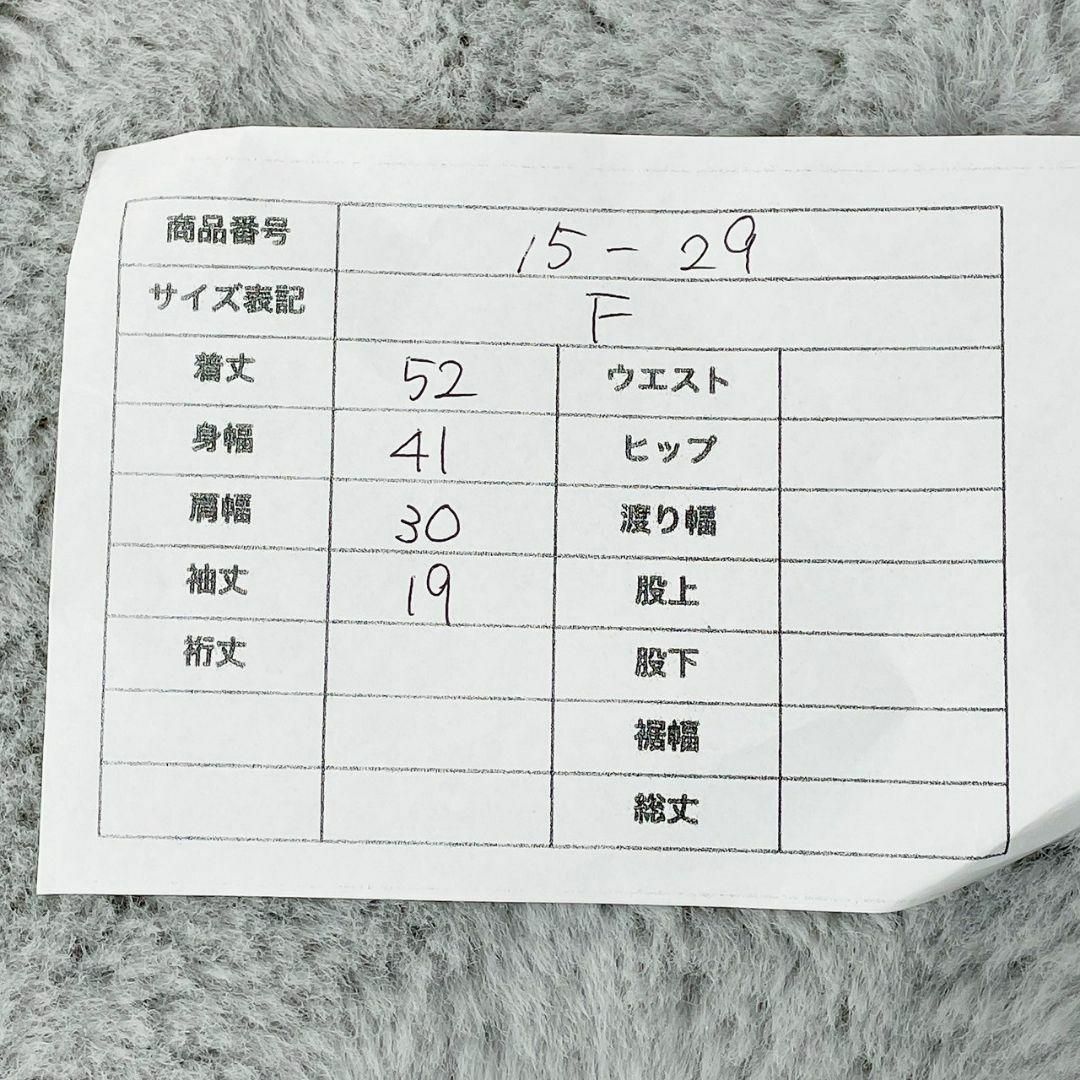 商品番号 15-29
サイズ表記 F
着丈 52 ウエスト
身幅 41 ヒップ
肩幅 30 渡り幅
袖丈 19 股上
裄丈 股下
裾幅
総丈